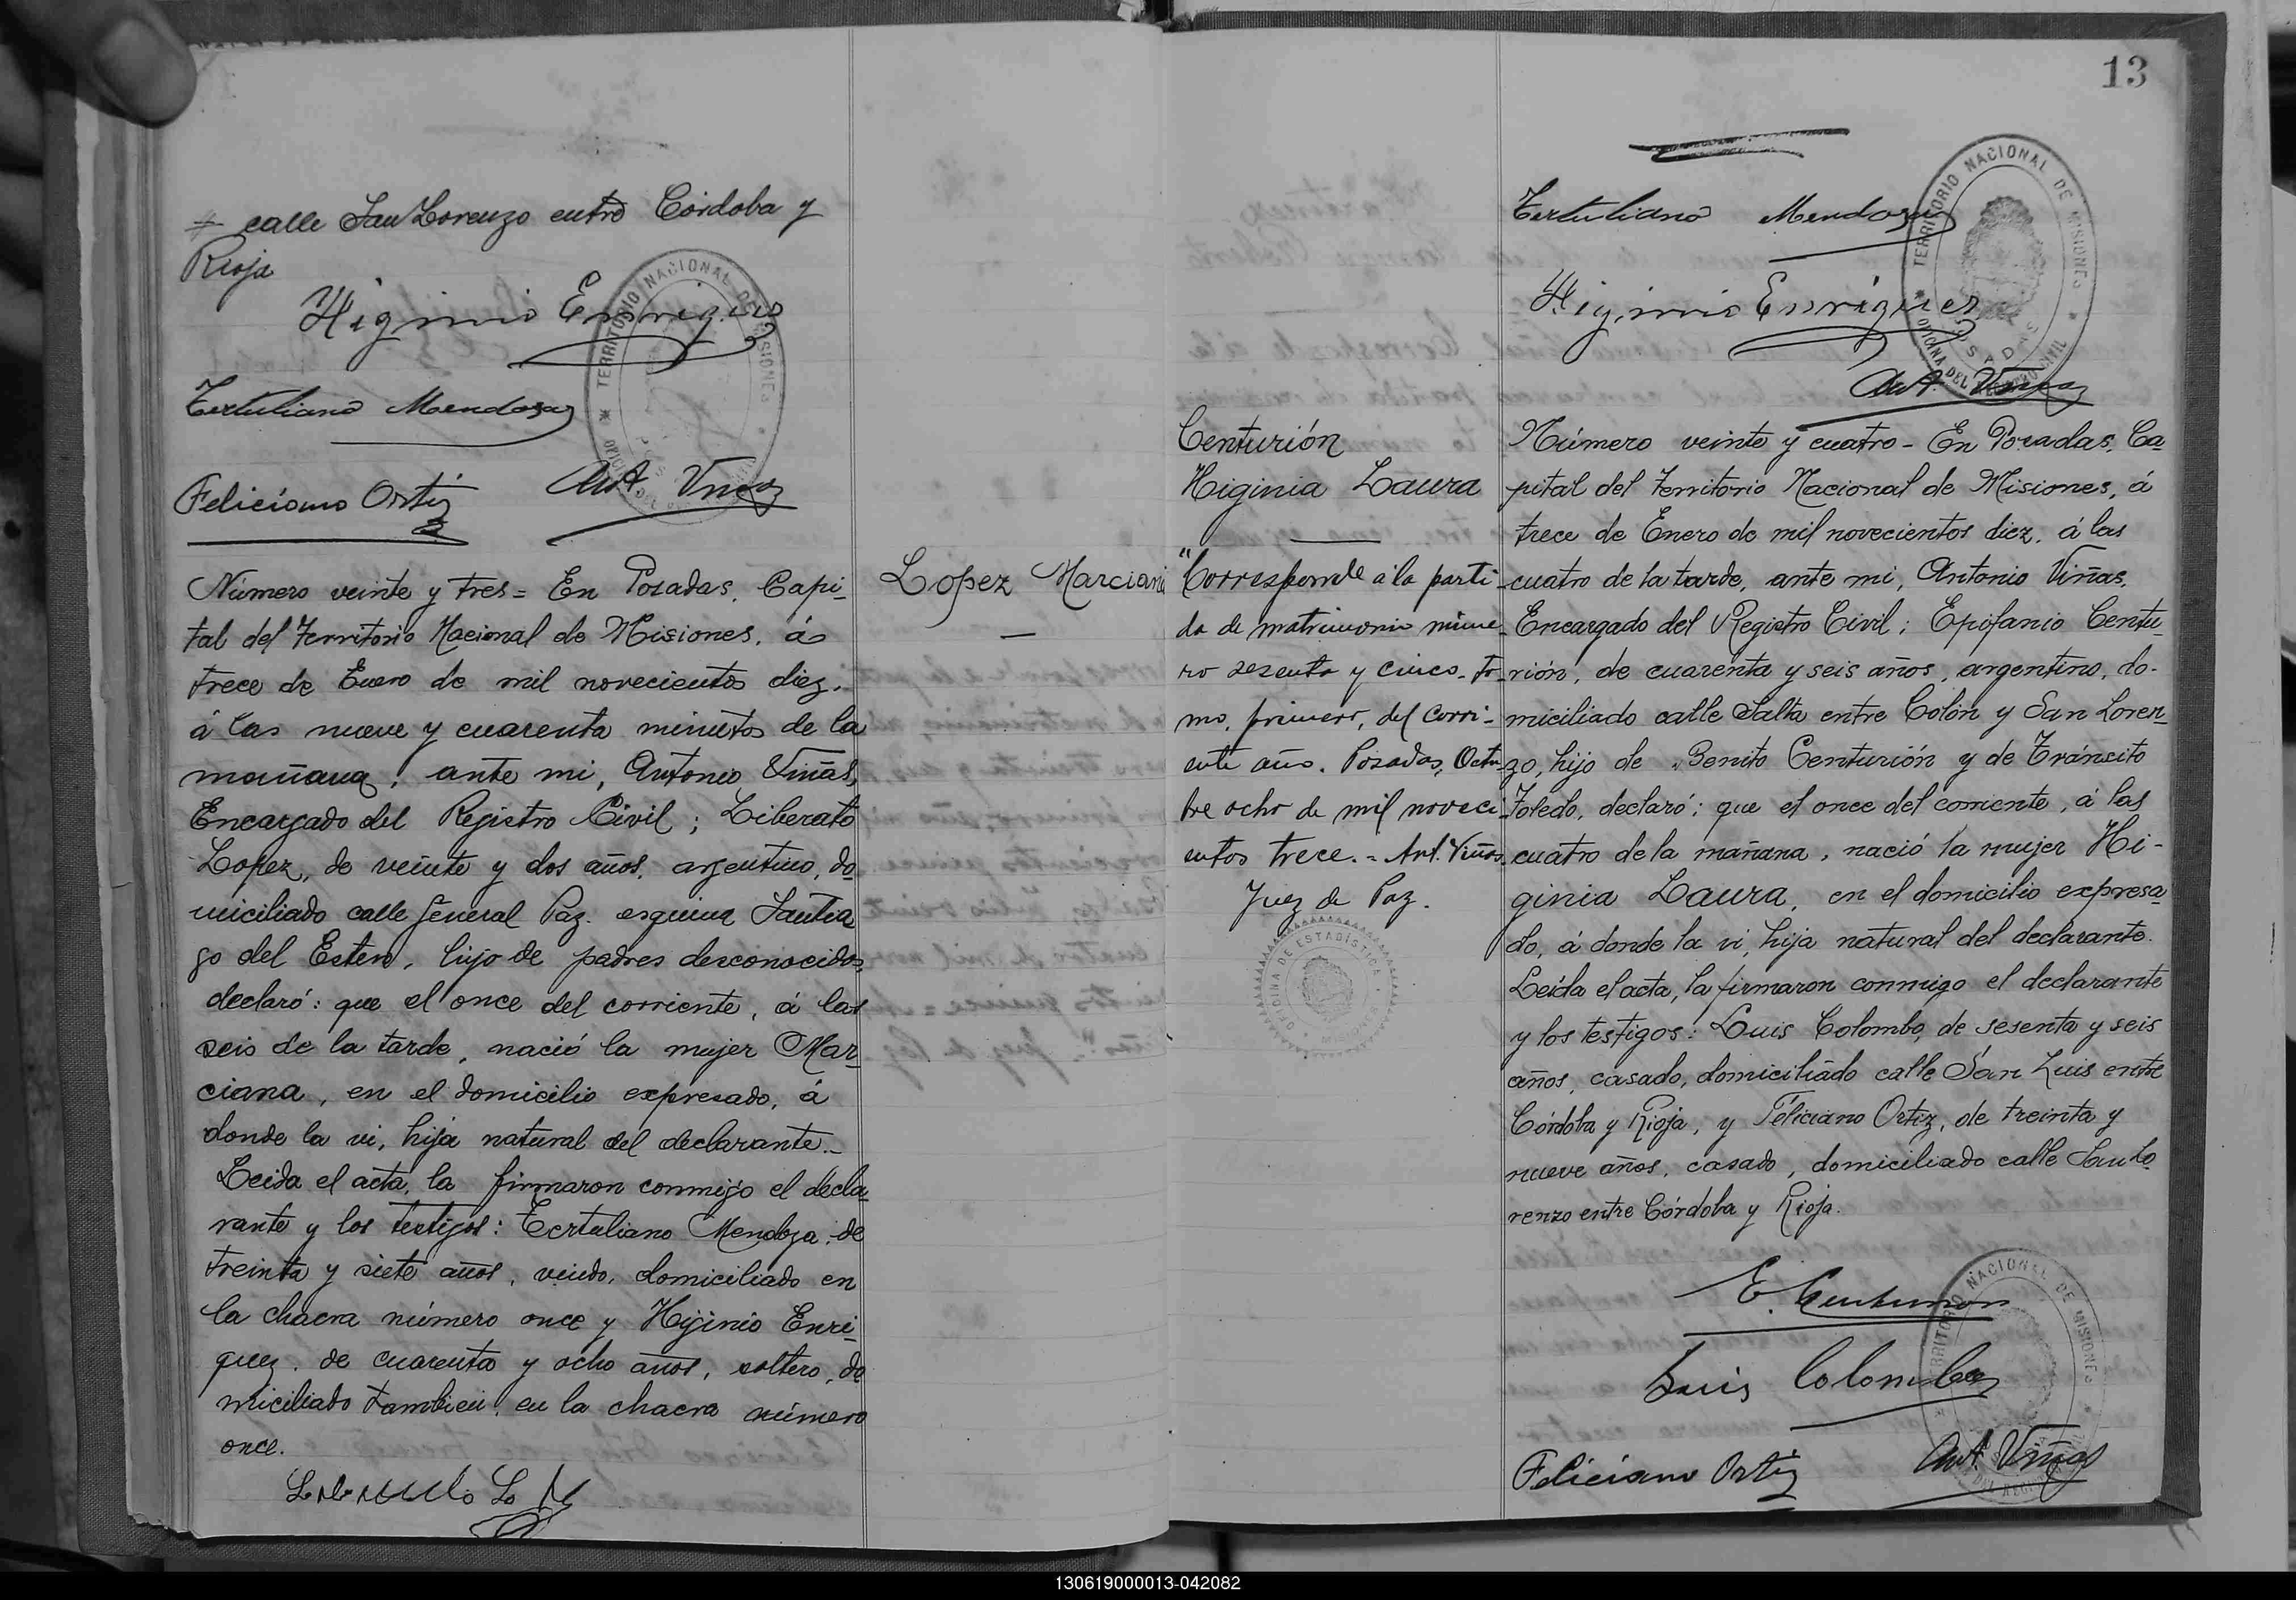 calle San Lorenzo entre Córdoba y
Rioja
Higinio Enriquez
Tertuliano Mendoza
Feliciano Ortiz Ant. Viñas
TERRITORIO NACIONAL DE MISIONES
Número veinte y tres = En Posadas, Capi-
tal del Territorio Nacional de Misiones, á
trece de Enero de mil novecientos diez,
á las nueve y cuarenta minutos de la
mañana; ante mi, Antonio Viñas,
Encargado del Registro Civil; Liberato
Lopez, de veinte y dos años, argentino, do
miciliado calle General Paz esquina Santia
go del Estero, hijo de padres desconocidos,
declaró: que el once del corriente, á las
seis de la tarde, nació la mujer Mar-
ciana, en el domicilio expresado, á
donde la vi, hija natural del declarante.-
Leida el acta, la firmaron conmigo el decla-
rante y los testigos: Tertuliano Mendoza, de
treinta y siete años, viudo, domiciliado en
la chacra número once y Hijinio Enri-
quez, de cuarenta y ocho años, soltero, do
miciliado tambien, en la chacra número
once.
Lopez Marciana
13
Tertuliano Mendoza
Higinio Enriquez
Ant. Viñas
TERRITORIO NACIONAL DE MISIONES
OFICINA DEL REGISTRO CIVIL
POSADAS
Centurión
Higinia Laura
"Corresponde á la parti-
da de matrimonio núme-
ro sesenta y cinco, to-
mo, primero, del corri-
ente año. Posadas, Octu-
bre ocho de mil noveci-
entos trece. = Ant. Viñas
Juez de Paz.
OFICINA DE ESTADISTICA
Número veinte y cuatro - En Posadas, Ca
pital del Territorio Nacional de Misiones, á
trece de Enero de mil novecientos diez, á las
cuatro de la tarde, ante mi, Antonio Viñas,
Encargado del Registro Civil; Epifanio Centu-
rión, de cuarenta y seis años, argentino, do-
miciliado calle Salta entre Colón y San Loren-
zo, hijo de Benito Centurión y de Tránsito
Toledo, declaró: que el once del corriente, á las
cuatro de la mañana, nació la mujer Hi-
ginia Laura, en el domicilio expresa-
do, á donde la vi, hija natural del declarante.
Leída el acta, la firmaron conmigo el declarante
y los testigos: Luis Colombo, de sesenta y seis
años, casado, domiciliado calle San Luis entre
Córdoba y Rioja, y Feliciano Ortiz, de treinta y
nueve años, casado, domiciliado calle San Lo-
renzo entre Córdoba y Rioja.
E. Centurion
Luis Colombo
Feliciano Ortiz Ant. Viñas
TERRITORIO NACIONAL DE MISIONES
130619000013-042082